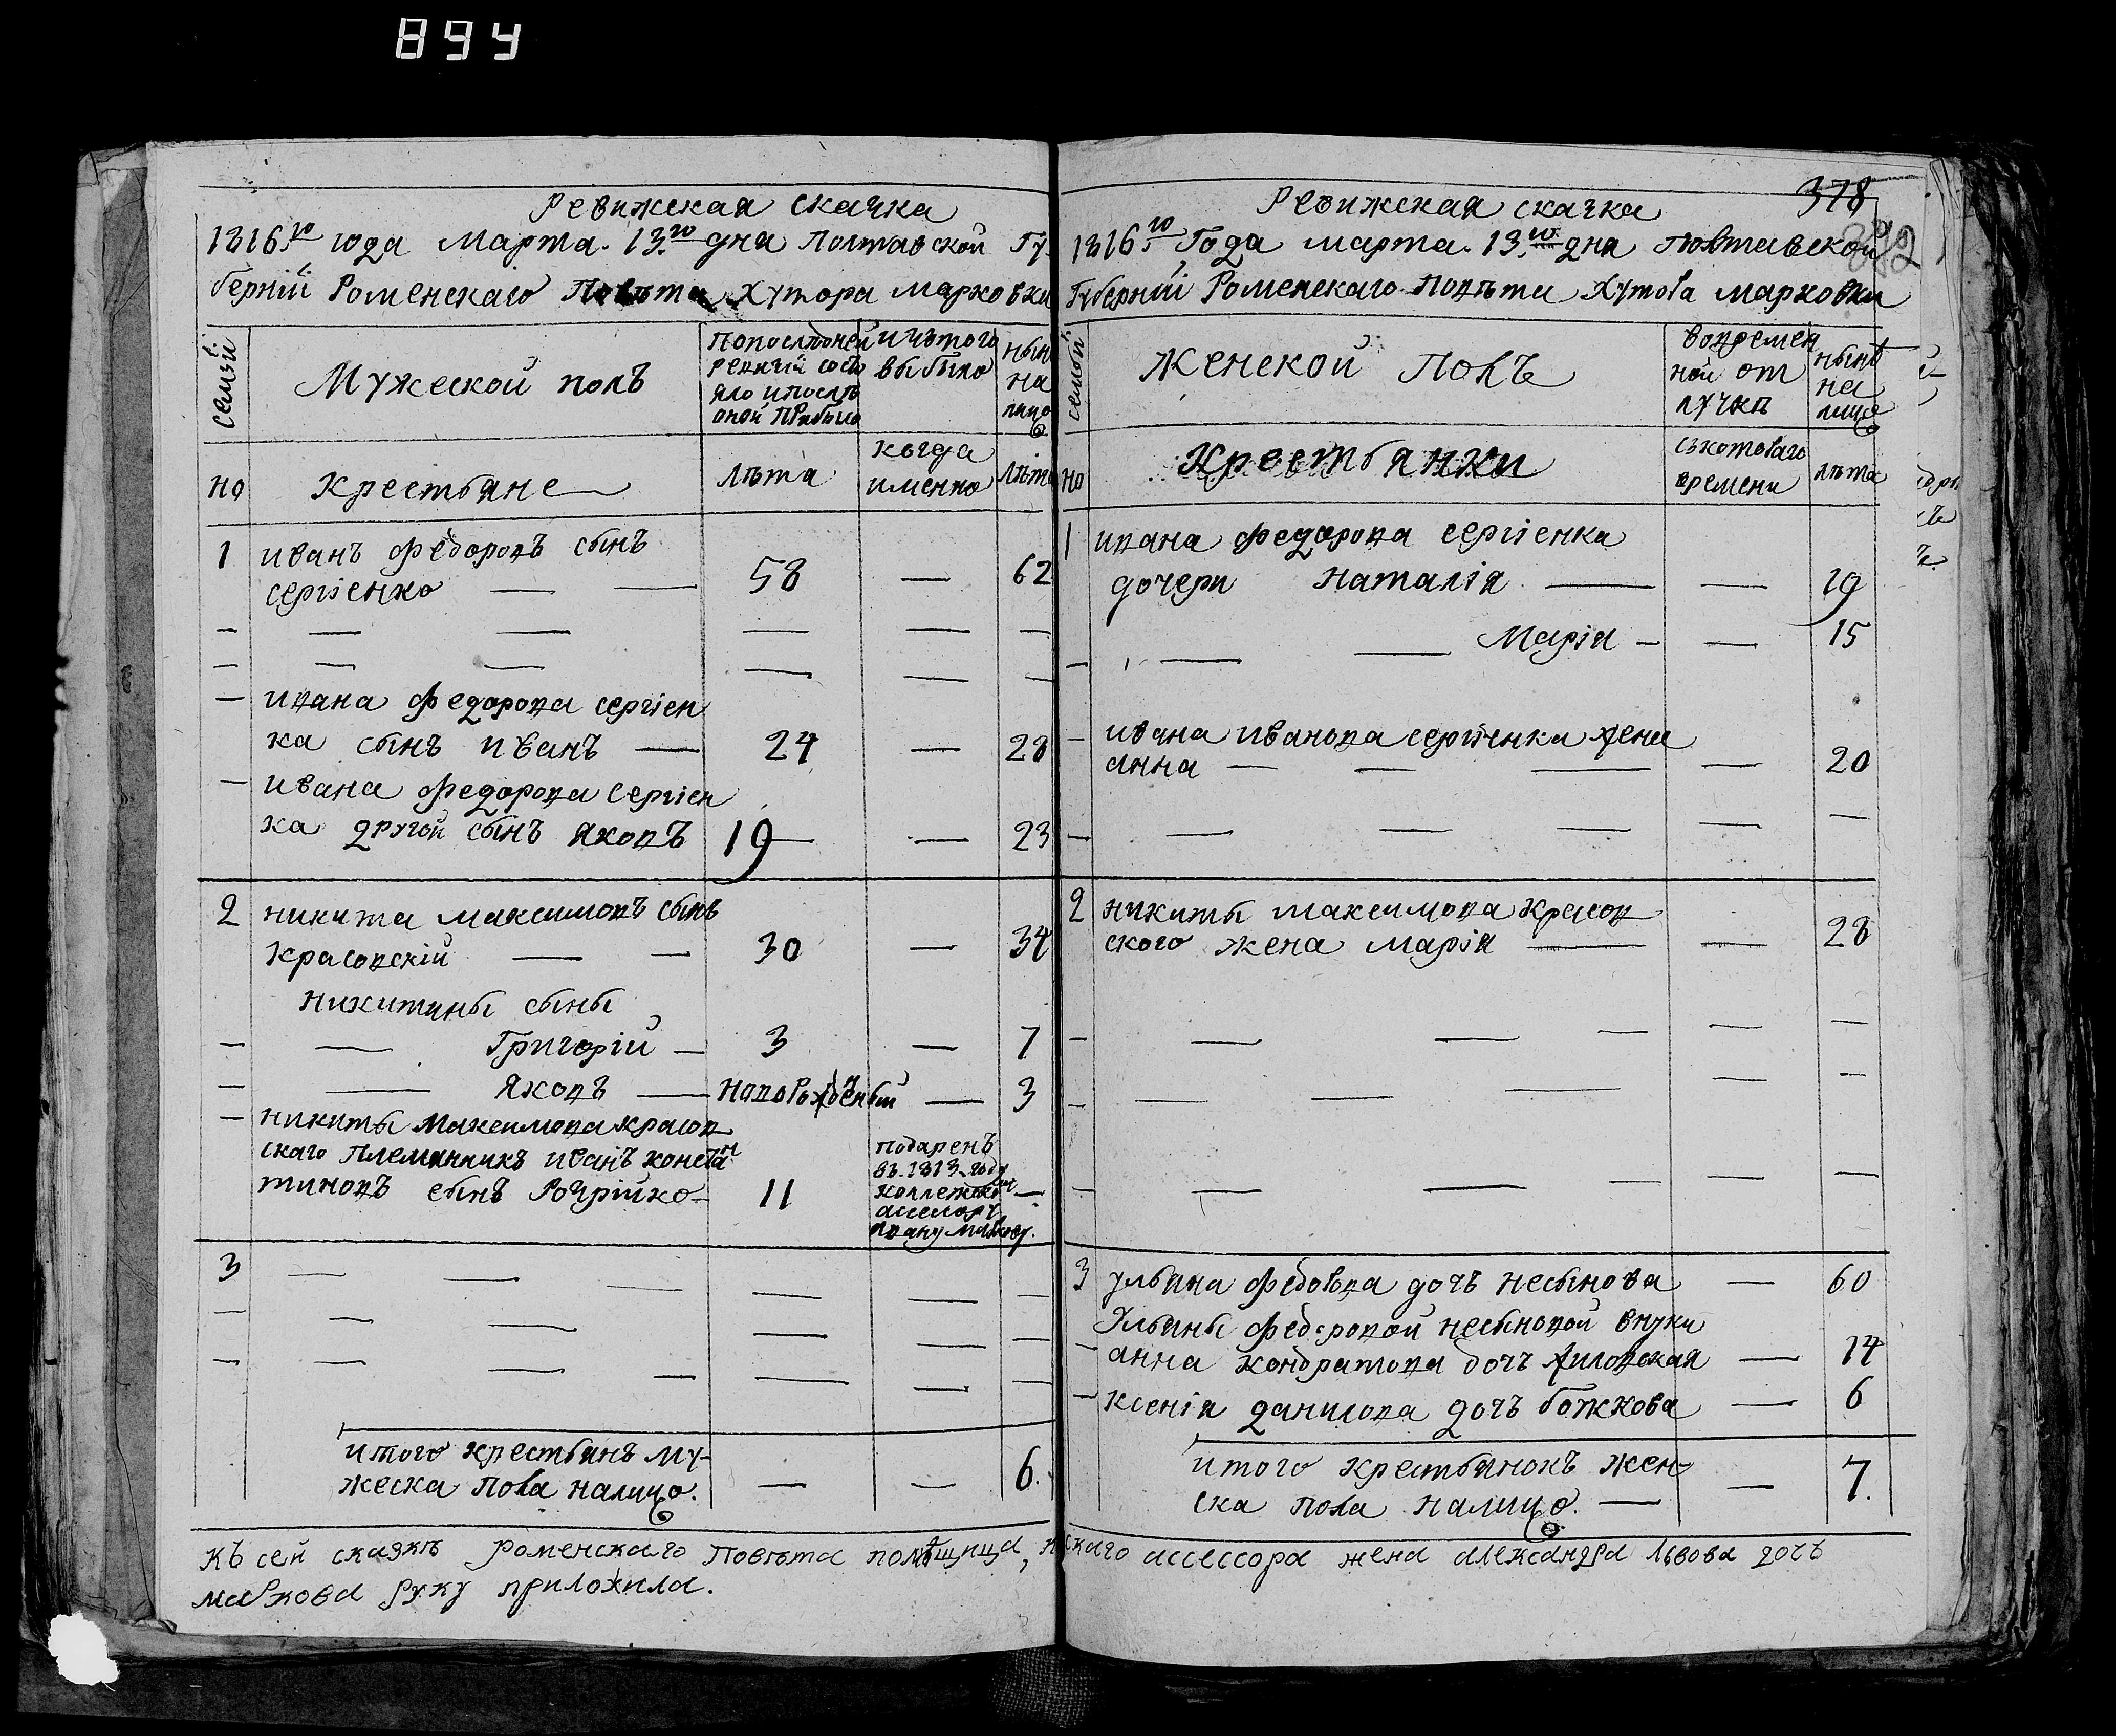 894
Ревижская скачка
1816.го года Марта. 13.го дня Полтавской Гу-
берніи Роменскаго Повѣта Хутора Марковки
семьи
Мужеской полъ
По последней
ревизіи сост
яло и послѣ
оной прибыло
ичътого
выбыло
нын
на
лицо
но
Крестьяне
лѣта
когда
именно
лѣта
1
иванъ федоровъ сынъ
сергіенко — —
58
—
62
ивана федорова сергіен
ка сынъ иванъ —
24
—
28
ивана федорова сергіен
ка другой сынъ яковъ
19
—
23
2
никита максимовъ сынъ
красовскій — —
30
—
34
никитины сыны
— Григорій —
3
—
7
— яковъ —
новорожденый
—
3
никиты максимова красов
скаго племянникъ иванъ конста
тиновъ сынъ
11
подаренъ
въ. 1813 году
коллежско
асессору
ивану маркову.
—
3
итого крестьянъ му-
жеска пола налицо.
—
—
6.
378
Ревижская скачка
1816го Года марта. 13.го дня Полтавской
Губерніи Роменскаго Повѣта Хутора марковки
семьи
Женской Полъ
вовремен
ной от
лучкѣ
нынѣ
на
лицо
но
Крестьянки
съкотораго
времени
лѣта
1
ивана федорова сергіенка
дочери Наталія —
—
19
— — Марія —
—
15
ивана иванова сергіенка жена
анна — — —
—
20
2
никиты максимова красов
ского жена марія —
—
28
3
ульяна федорова дочъ несынова
—
60
Ульяны федоровой несыновой внуки
анна кондратова дочъ
—
14
ксенія данилова дочъ божкова
—
6
итого крестьянокъ жен-
ска пола налицо. —
—
7.
Къ сей сказкѣ роменскаго Повѣта помѣщица, скаго ассессора жена александра львова дочь
маркова руку приложила.